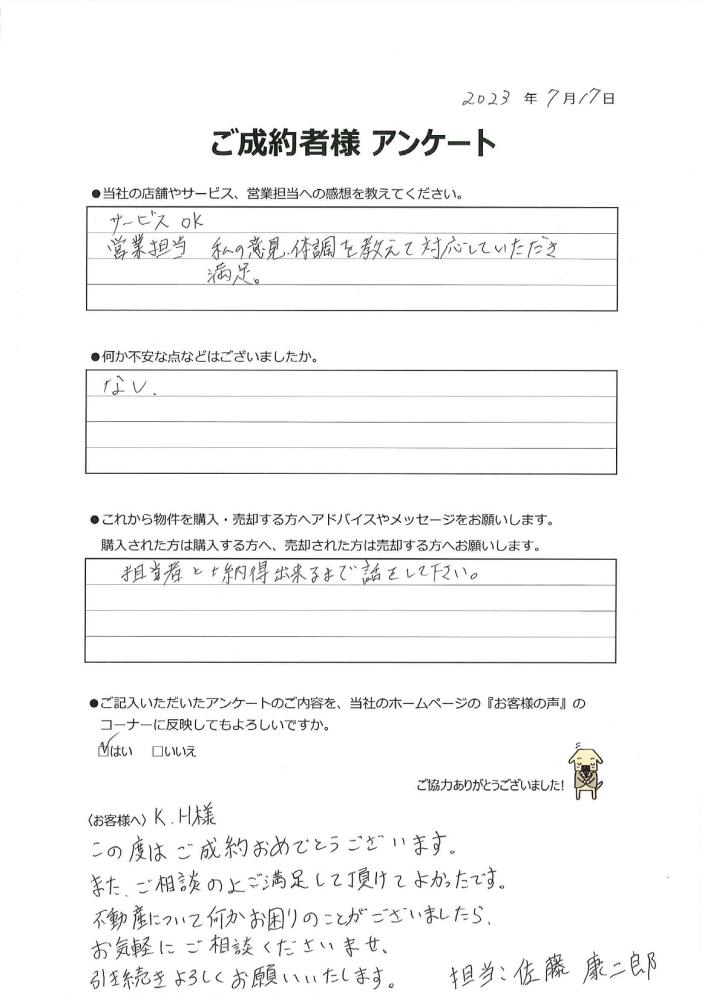 2023 年 7月17日
ご成約者様 アンケート
●当社の店舗やサービス、営業担当への感想を教えてください。
サービス OK
営業担当 私の意見、体調を教えて対応していただき
満足。
●何か不安な点などはございましたか。
なし.
●これから物件を購入・売却する方へアドバイスやメッセージをお願いします。
購入された方は購入する方へ、売却された方は売却する方へお願いします。
担当者と納得出来るまで話をして下さい。
●ご記入いただいたアンケートのご内容を、当社のホームページの『お客様の声』の
コーナーに反映してもよろしいですか。
☑はい □いいえ
ご協力ありがとうございました!
〈お客様へ〉K.H様
この度はご成約おめでとうございます。
また、ご相談の上ご満足して頂けてよかったです。
不動産について何かお困りのことがございましたら、
お気軽にご相談くださいませ、
引き続きよろしくお願いいたします。 担当:佐藤 康二郎